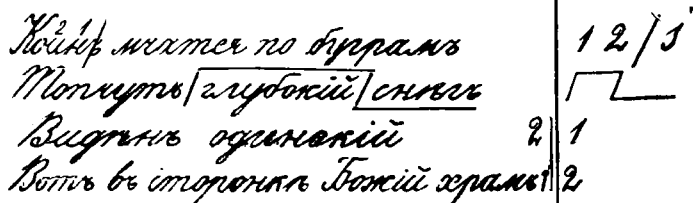 мчатся по буграмъ 1 2 / 3
Топчутъ глубокій снѣгъ
Видѣнъ одинокій 2 1
Вотъ въ сторонкѣ Божій храмъ 1 2